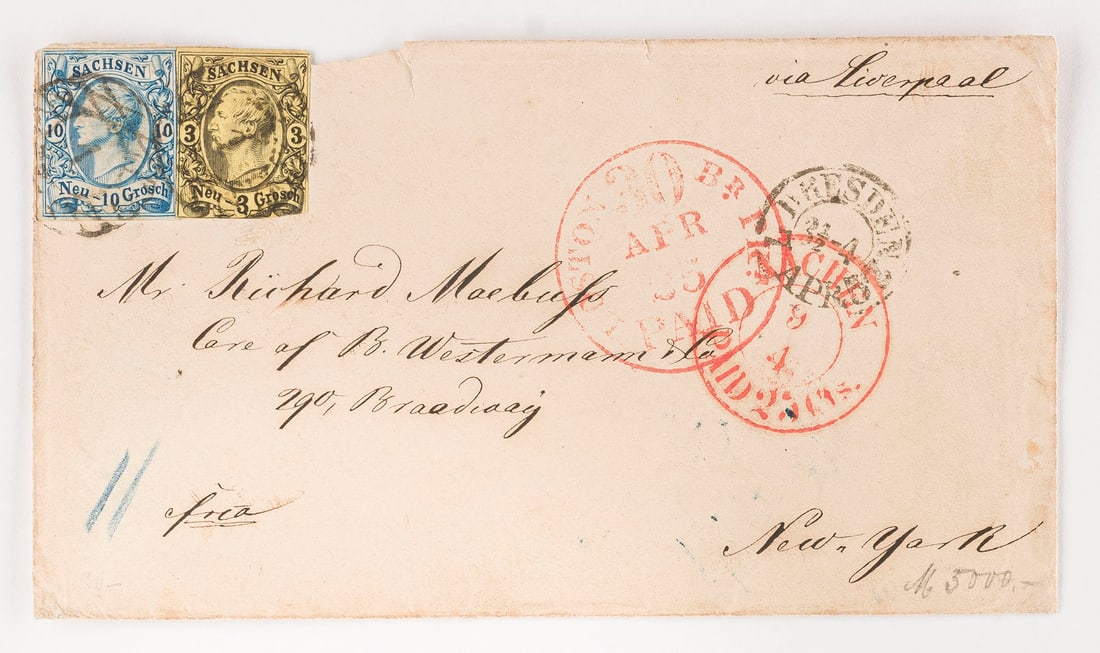 SACHSEN
10 10
Neu-10 Grosch
SACHSEN
3 3
Neu-3 Grosch
via Liverpool
BOSTON BR. PKT.
30
APR
PAID
DRESDEN
APR
AACHEN
9
4
PAID 25 Cts.
Mr. Richard Moebuss
Care of B. Westermann & Co
290, Broadway
franco
New-York
M 5000.-